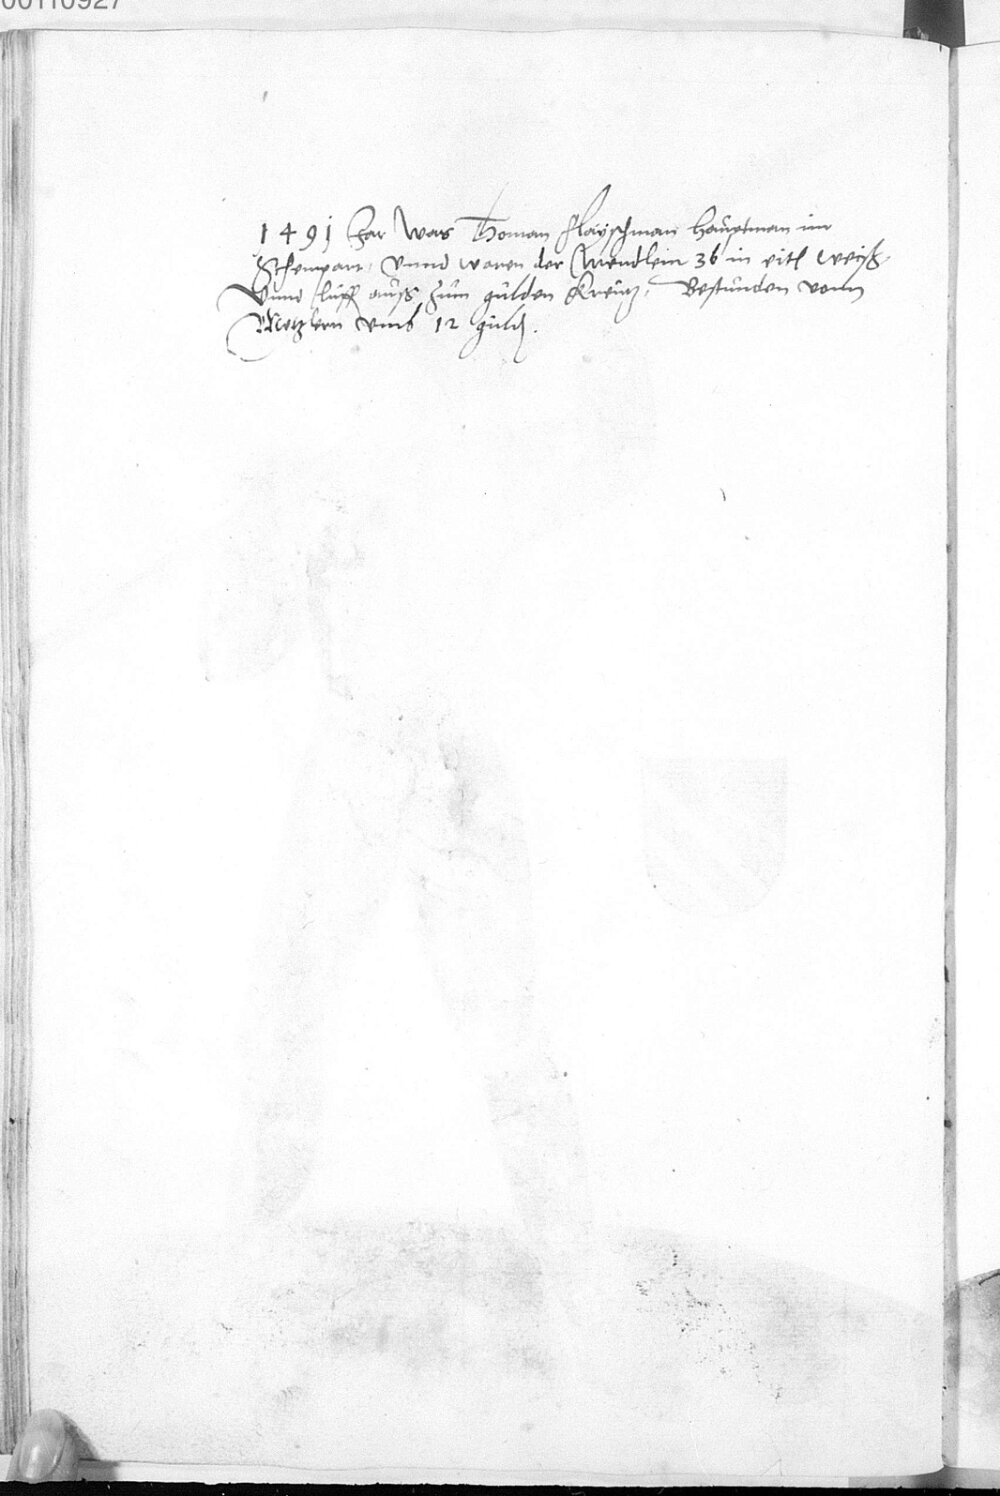 00110927
1491 Jar Was Thoman Flayschman Haubtman im
Schempart, Vnnd waren der Mendlein 36 in eitl weiß
Vnnd luff auß zum gulden Kreutz, Bestunden vonn
Metzlern vmb 12 guld.